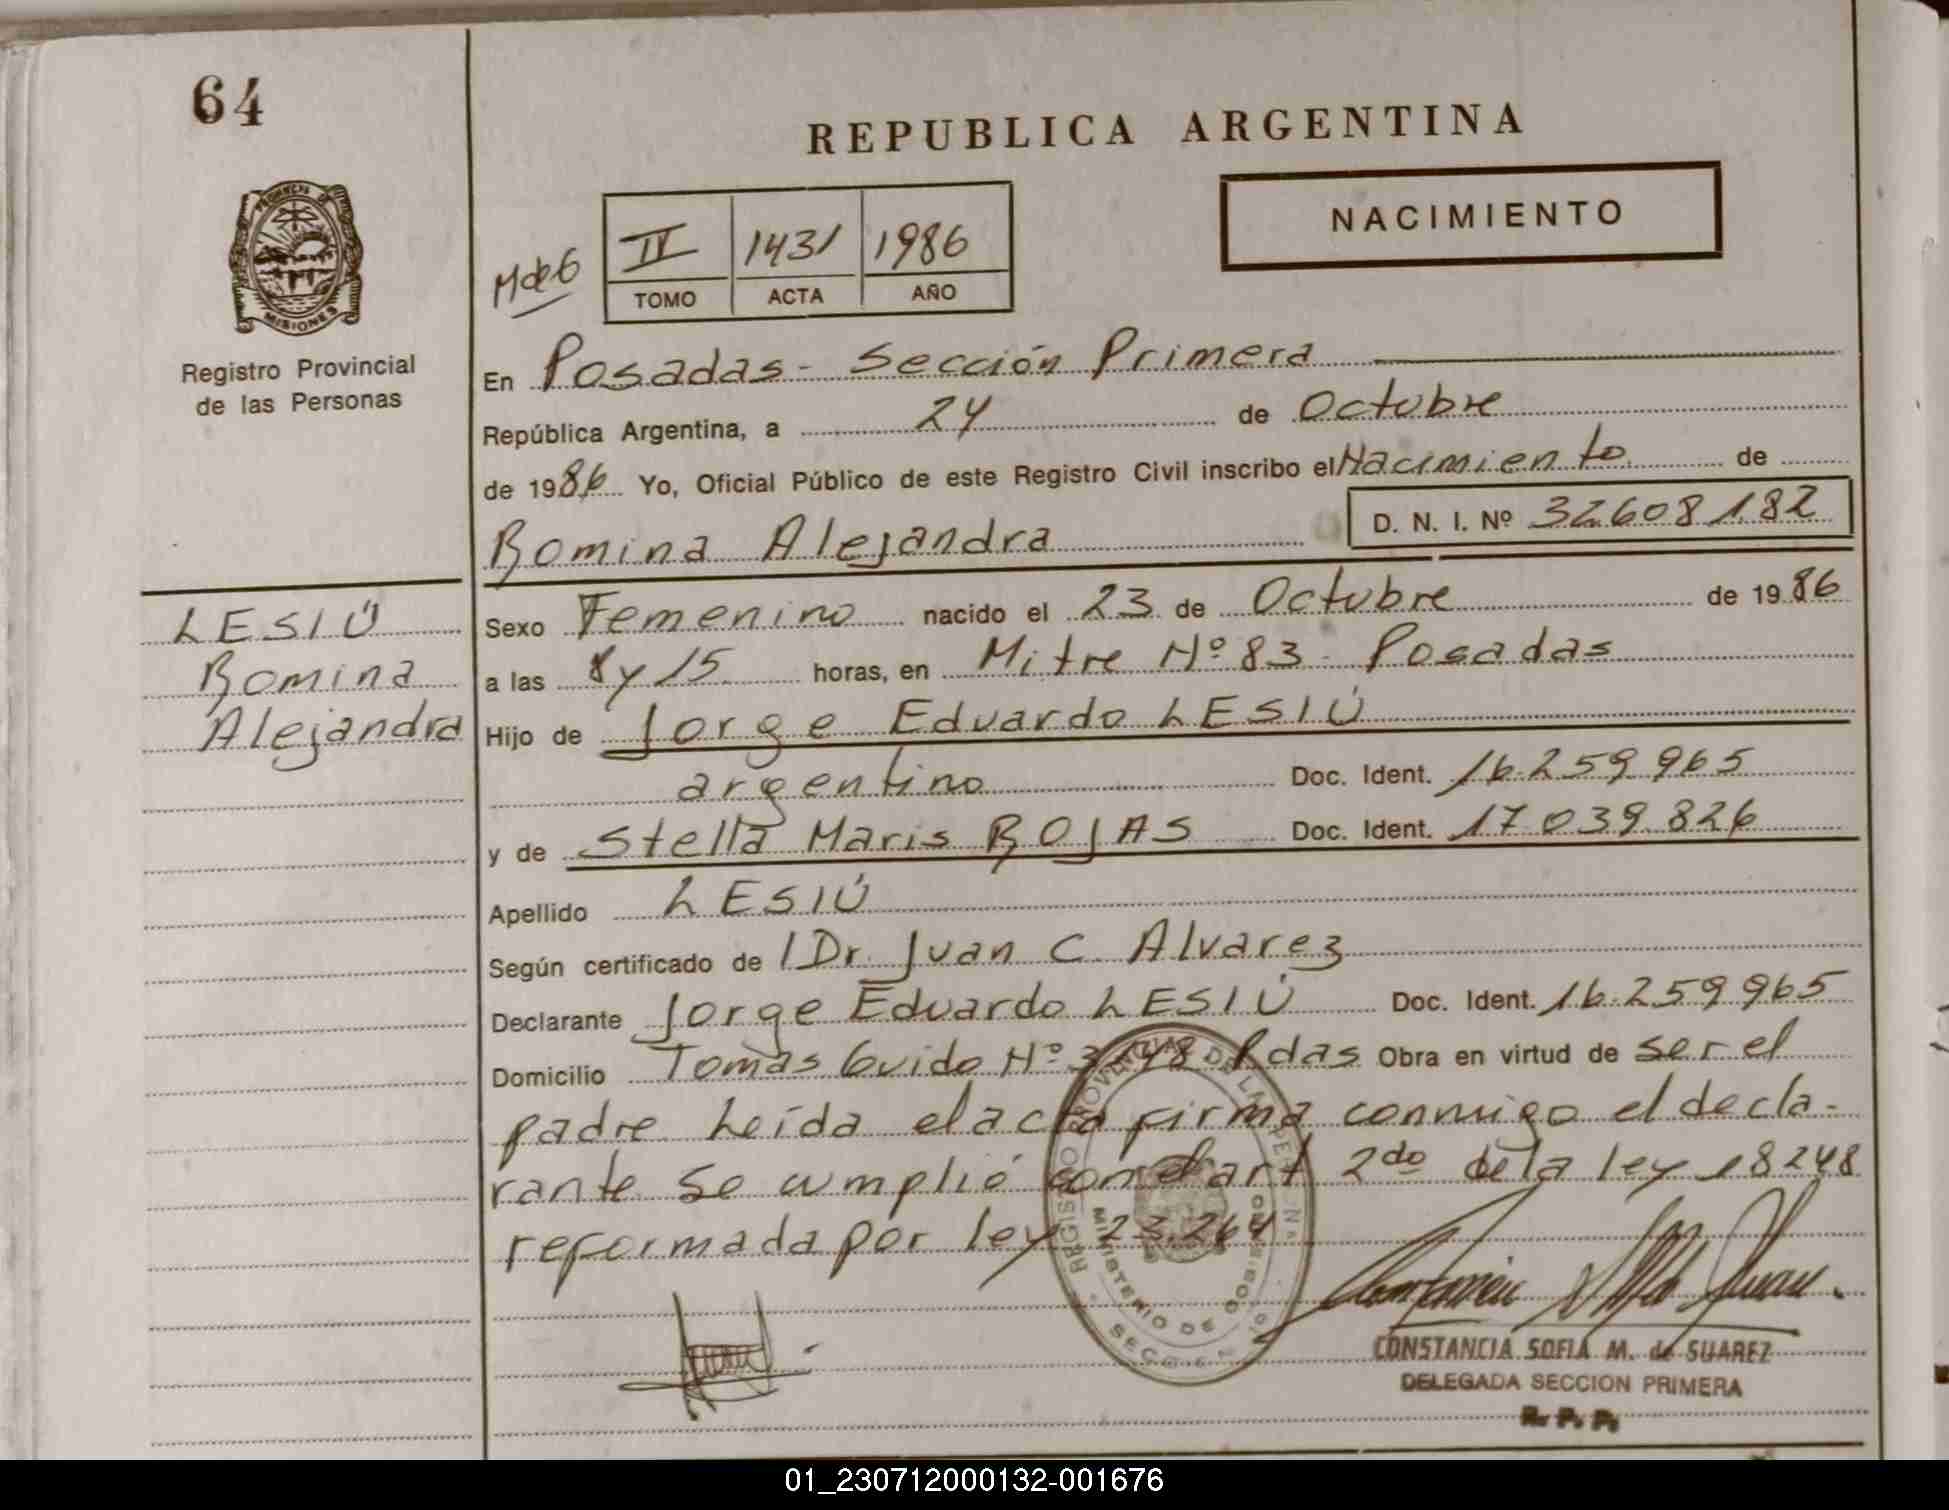 64
REPUBLICA ARGENTINA
NACIMIENTO
PROVINCIA DE
MISIONES
Registro Provincial
de las Personas
M de G
IV 1431 1986
TOMO ACTA AÑO
En Posadas - Sección Primera
República Argentina, a 24 de Octubre
de 1986 Yo, Oficial Público de este Registro Civil inscribo el Nacimiento de
Romina Alejandra D. N. I. Nº 32.608.182
LESIÚ
Romina
Alejandra
Sexo Femenino nacido el 23 de Octubre de 1986
a las 8 y 15 horas, en Mitre Nº 83 - Posadas
Hijo de Jorge Eduardo LESIÚ
argentino Doc. Ident. 16.259.965
y de Stella Maris ROJAS Doc. Ident. 17.039.826
Apellido LESIÚ
Según certificado de Dr. Juan C. Alvarez
Declarante Jorge Eduardo LESIÚ Doc. Ident. 16.259.965
Domicilio Tomas Guido Nº Pdas Obra en virtud de ser el
padre Leída el acta firma conmigo el decla-
rante Se cumplió con el art 2do de la ley 18248
reformada por ley 23.264
REGISTRO PROVINCIAL DE LAS PERSONAS
MINISTERIO DE GOBIERNO
SECCION
CONSTANCIA SOFIA M. de SUAREZ
DELEGADA SECCION PRIMERA
R. P. P.
01_230712000132-001676